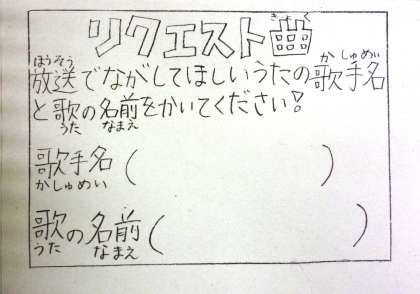 きょく
リクエスト曲
ほうそう かしゅめい
放送でながしてほしいうたの歌手名
と歌の名前をかいてください!
うた なまえ
歌手名( )
かしゅめい
歌の名前( )
うた なまえ